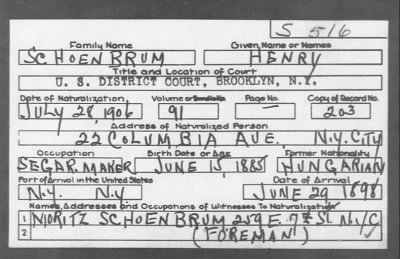 S 516
Family Name Given Name or Names
SCHOENBRUM HENRY
Title and Location of Court
U. S. DISTRICT COURT, BROOKLYN, N.Y.
Date of Naturalization Volume or Bundle No. Page No. Copy of Record No.
JULY 28, 1906 91 203
Address of Naturalized Person
22 COLUMBIA AVE. N.Y. CITY
Occupation Birth Date or Age Former Nationality
SEGAR. MAKER JUNE 15, 1885 HUNGARIAN
Port of Arrival in the United States Date of Arrival
N.Y. N.Y JUNE 29 1898
Names, Addresses and Occupations of Witnesses To Naturalization
1 MORITZ SCHOENBRUM 259 E. 7th St. N.Y.C
2 (FOREMAN)